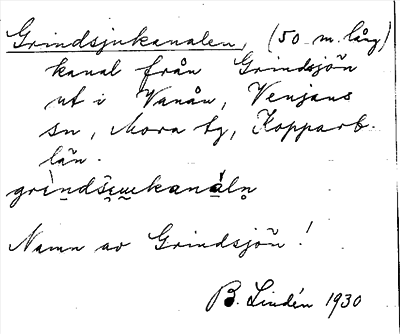 Grindsjukanalen, (50 m. lång)
kanal från Grindsjön
ut i Vanån, Venjans
sn, Mora tg, Kopparb.
län.
grìndšɯkanáln̥
Namn av Grindsjön!
B. Lindén 1930